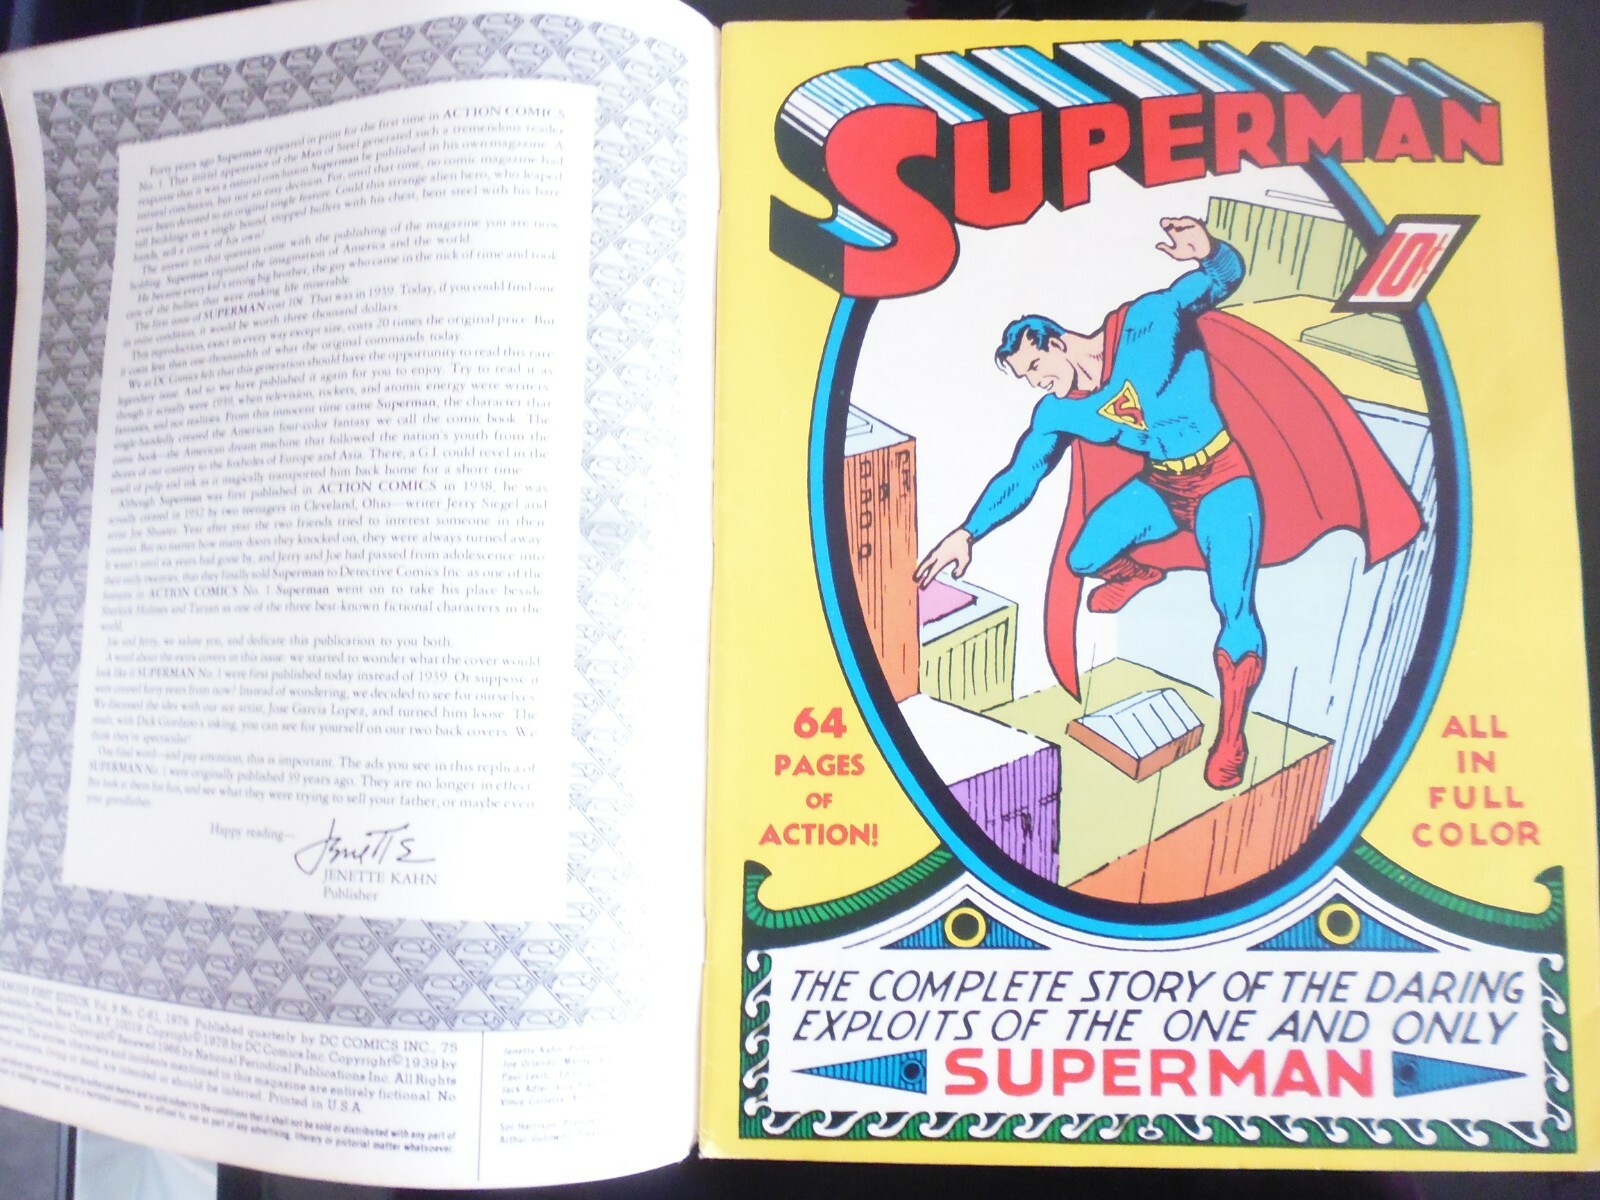 Forty years ago Superman appeared in print for the first time in ACTION COMICS
No. 1. That initial appearance of the Man of Steel generated such a tremendous reader
response that it was a natural conclusion Superman be published in his own magazine. A
natural conclusion, but not an easy decision. For, until that time, no comic magazine had
ever been devoted to an original single feature. Could this strange alien hero, who leaped
tall buildings in a single bound, stopped bullets with his chest, bent steel with his bare
hands, sell a comic of his own?
The answer to that question came with the publishing of the magazine you are now
holding. Superman captured the imagination of America and the world.
He became every kid's strong big brother, the guy who came in the nick of time and took
care of the bullies that were making life miserable.
The first issue of SUPERMAN cost 10¢. That was in 1939. Today, if you could find one
in mint condition, it would be worth three thousand dollars.
This reproduction, exact in every way except size, costs 20 times the original price. But
it costs less than one thousandth of what the original commands today.
We at DC Comics felt that this generation should have the opportunity to read this rare
legendary issue. And so we have published it again for you to enjoy. Try to read it as
though it actually were 1939, when television, rockets, and atomic energy were writers'
fantasies, and not realities. From this innocent time came Superman, the character that
single-handedly created the American four-color fantasy we call the comic book. The
comic book—the American dream machine that followed the nation's youth from the
shores of our country to the foxholes of Europe and Asia. There, a G.I. could revel in the
smell of pulp and ink as it magically transported him back home for a short time.
Although Superman was first published in ACTION COMICS in 1938, he was
actually created in 1932 by two teenagers in Cleveland, Ohio—writer Jerry Siegel and
artist Joe Shuster. Year after year the two friends tried to interest someone in their
creation. But no matter how many doors they knocked on, they were always turned away.
It wasn't until six years had gone by, and Jerry and Joe had passed from adolescence into
their early twenties, that they finally sold Superman to Detective Comics Inc. as one of the
features in ACTION COMICS No. 1 Superman went on to take his place beside
Sherlock Holmes and Tarzan as one of the three best-known fictional characters in the
world.
Joe and Jerry, we salute you, and dedicate this publication to you both.
A word about the extra covers in this issue: we started to wonder what the cover would
look like if SUPERMAN No. 1 were first published today instead of 1939. Or suppose it
were created forty years from now? Instead of wondering, we decided to see for ourselves.
We discussed the idea with our ace artist, Jose Garcia Lopez, and turned him loose. The
result, with Dick Giordano's inking, you can see for yourself on our two back covers. We
think they're spectacular!
One final word—and pay attention, this is important. The ads you see in this replica of
SUPERMAN No. 1 were originally published 39 years ago. They are no longer in effect.
But look at them for fun, and see what they were trying to sell your father, or maybe even
your grandfather.
Happy reading—
Jenette
JENETTE KAHN
Publisher
FAMOUS FIRST EDITION, Vol. 8 No. C-61, 1978. Published quarterly by DC COMICS INC., 75
Rockefeller Plaza, New York, N.Y. 10019. Copyright © 1978 by DC Comics Inc. Copyright © 1939 by
Copyright © Renewed 1966 by National Periodical Publications Inc. All Rights
Reserved. The stories, characters and incidents mentioned in this magazine are entirely fictional. No
intended or should be inferred. Printed in U.S.A.
subject to the conditions that it shall not be sold or distributed with any part of
as part of any advertising, literary or pictorial matter whatsoever.
Jenette Kahn,
Joe Orlando,
Paul Levitz,
Jack Adler,
Vince Colletta,
Sol Harrison,
SUPERMAN
10¢
64
PAGES
OF
ACTION!
ALL
IN
FULL
COLOR
THE COMPLETE STORY OF THE DARING
EXPLOITS OF THE ONE AND ONLY
SUPERMAN